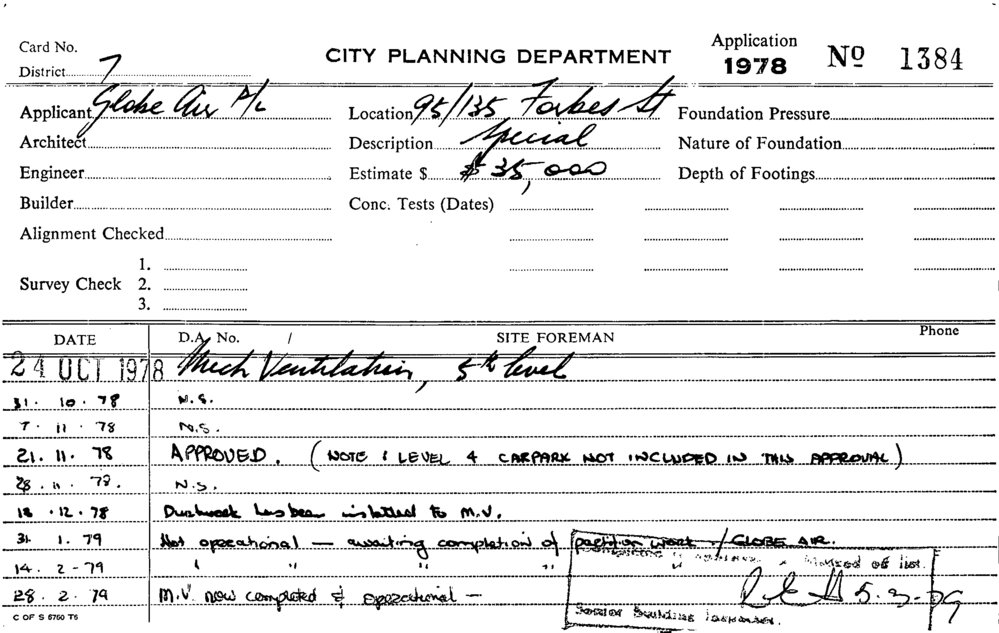 Card No.
District 7
CITY PLANNING DEPARTMENT
Application 1978 No 1384
Applicant Globe Air P/L
Location 95/135 Forbes St
Foundation Pressure
Architect
Description Special
Nature of Foundation
Engineer
Estimate $ $35,000
Depth of Footings
Builder
Conc. Tests (Dates)
Alignment Checked
1.
Survey Check 2.
3.
DATE D.A. No. / SITE FOREMAN Phone
24 OCT 1978 Mech Ventilation, 5th level
31. 10. 78 N.S.
7. 11. 78 N.S.
21. 11. 78 APPROVED. (NOTE : LEVEL 4 CARPARK NOT INCLUDED IN THIS APPROVAL)
28. 11. 78. N.S.
18. 12. 78 Ductwork has been installed to M.V.
31. 1. 79 Not operational — awaiting completion of partition work / GLOBE AIR.
14. 2-79 " " " " "
28. 2. 79 M.V. now completed & operational —
5.3.79
Senior Building Inspector.
C OF S 5760 T5